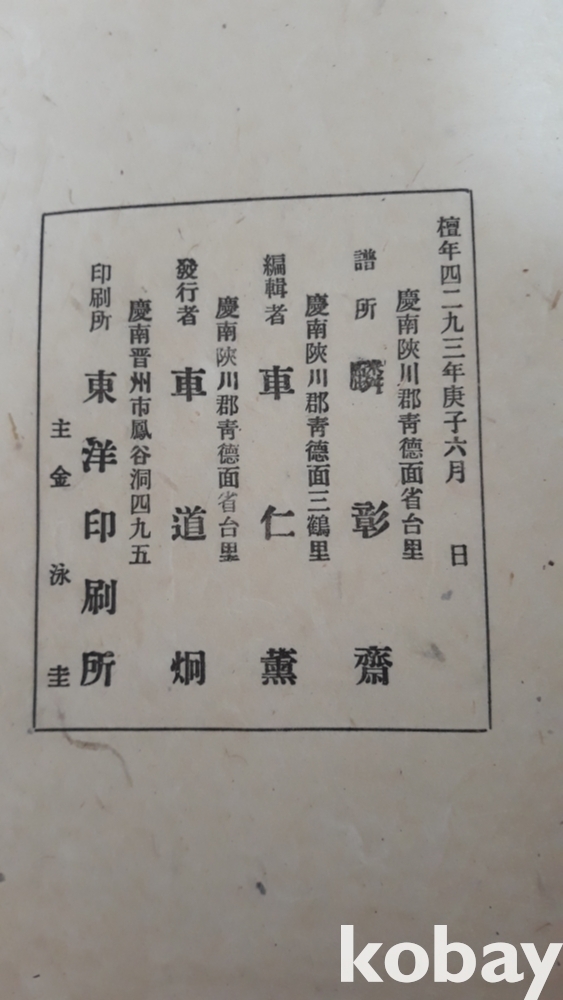 檀年四二九三年庚子六月 日
慶南陜川郡靑德面省台里
譜所 彰齋
慶南陜川郡靑德面三鶴里
編輯者 車仁薰
慶南陜川郡靑德面省台里
發行者 車道炯
慶南晋州市鳳谷洞四九五
印刷所 東洋印刷所
主金泳圭
kobay